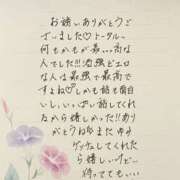 お誘いありがとうご
ざいました♡トータル〜
何もかもが最...高な
人でした!!!酒強ピエロ
な人は最高で最高で
すよね♡しかも話も面白
いし、いっぱい話してくれ
たから嬉しかった!!あり
がとうね
ゲッチュしてくれた
ら嬉しい
待っててもいい